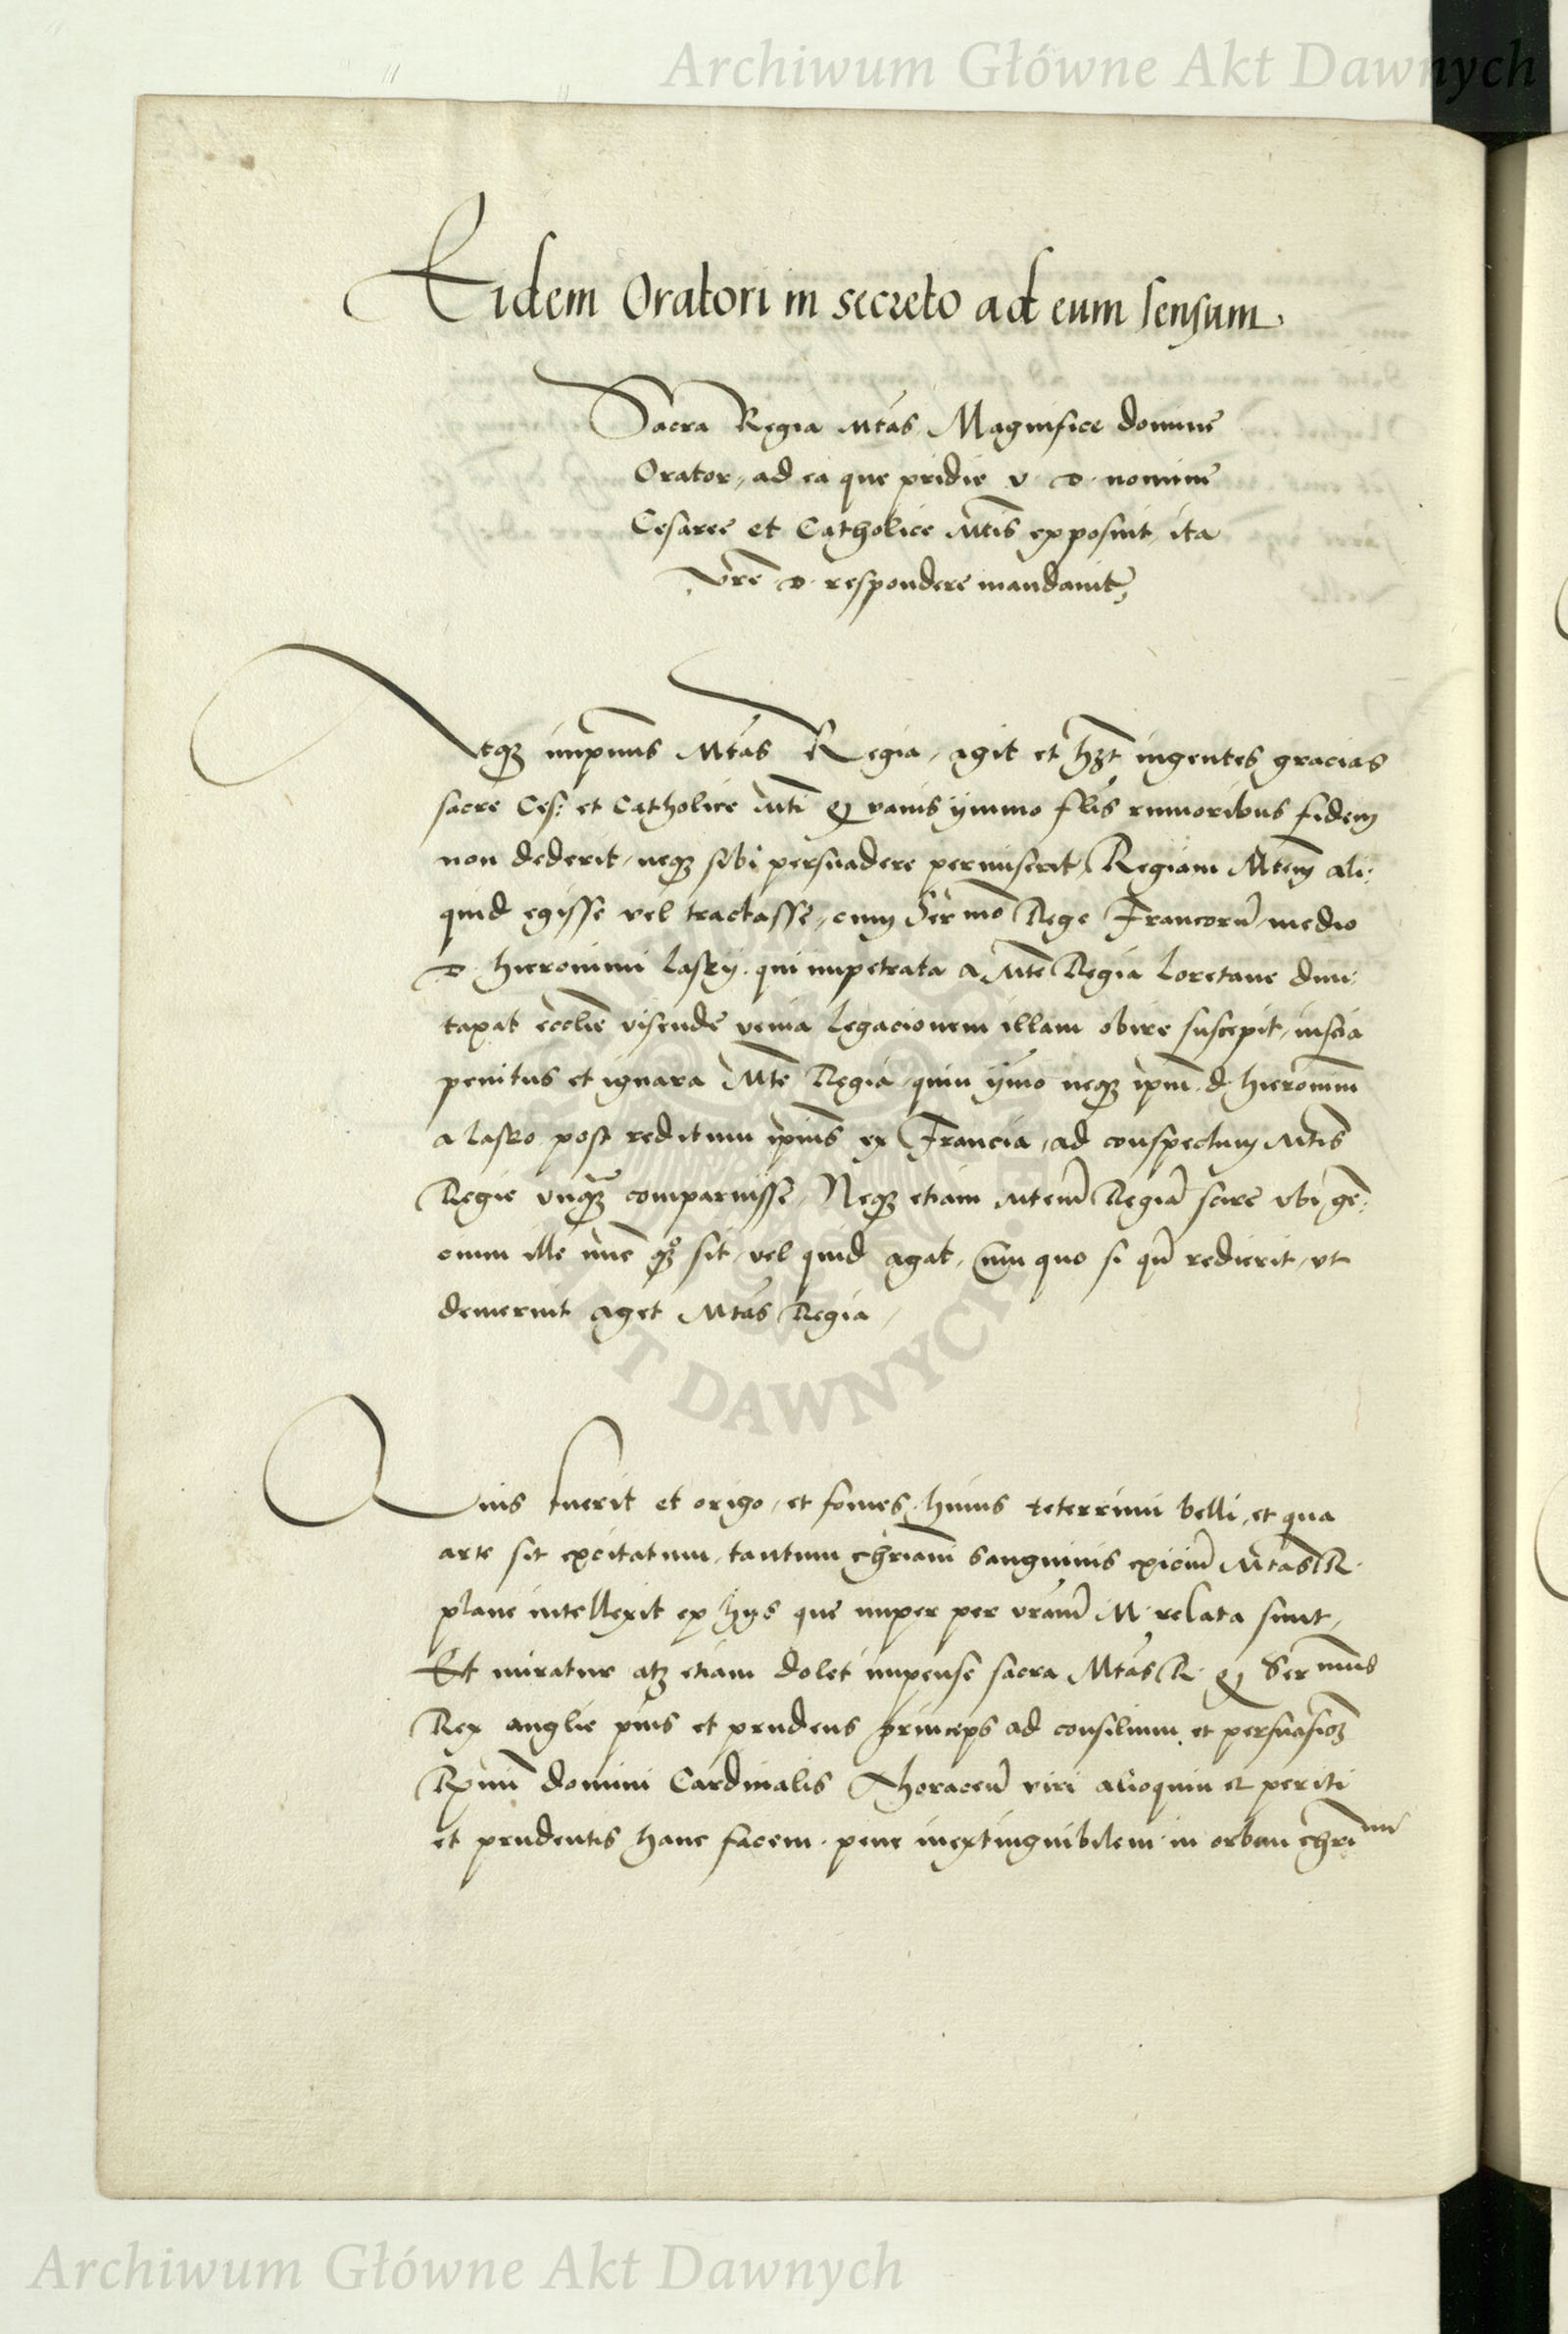 Archiwum Główne Akt Dawnych
Eidem Oratori in secreto ad eum sensum
Sacra Regia Mtas Magnifice domine
Orator, ad ea que pridie v. d. nomine
Cesaree et Catholice Mtis exposuit, ita
Vre d. respondere mandavit,
Utque imprimis Mtas Regia, agit et hzt ingentes gracias
sacre Ces: et Catholice Mti quod vanis ymmo flis rumoribus fidem
non dederit, neque sibi persuadere permiserit, Regiam Mtem ali:
quid egisse vel tractasse, cum Sermo Rege Francoru, medio
d. hieronimi lasky. qui impetrata a Mte Regia loretane dun:
taxat ecclie visende venia legacionem illam obire suscepit, inscia
penitus et ignara Mte Regia, quin ymo neque ipm d. hieronim
a lasko post reditum ipius ex Francia, ad conspectum Mtis
Regie unquam comparuisse, Neque etiam Mtem Regia scire ubi ge:
cium ille nunc sit, vel quid agat, Cum quo si qn redierit, ut
demeruit aget Mtas Regia,
Quis fuerit et origo, et fomes, huius teterrimi belli, et qua
arte sit excitatum, tantum chriani sanguinis exiciu Mtas R.
plane intellexit ex hys que nuper per vram M. relata sunt,
Et miratur atque etiam dolet impense sacra Mtas R. quod Sermus
Rex anglie pius et prudens princeps ad consilium et persuasione
Rmi domini Cardinalis Ehoracen viri alioquin et periti
et prudentis hanc facem. pene inextinguibilem in orbem chrianu
AKT DAWNYCH
Archiwum Główne Akt Dawnych